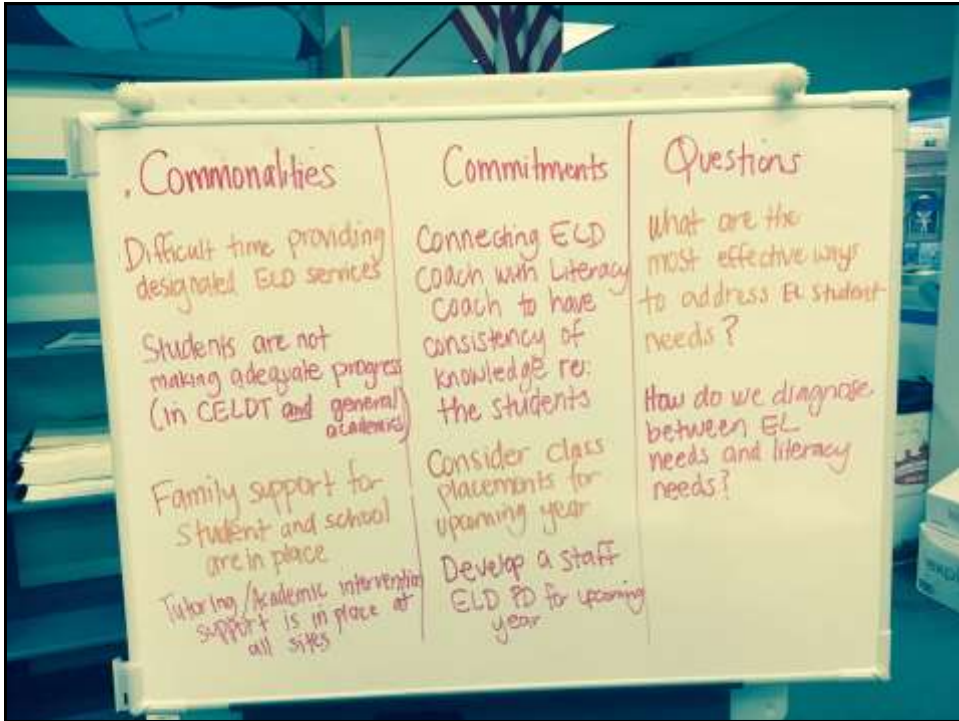 . Commonalities
Difficult time providing
designated ELD services
Students are not
making adequate progress
(in CELDT and general
academics)
Family support for
student and school
are in place
Tutoring/Academic intervention
support is in place at
all sites
Commitments
Connecting ELD
Coach with Literacy
Coach to have
consistency of
knowledge re:
the students
Consider class
placements for
upcoming year
Develop a staff
ELD PD for upcoming
year
Questions
What are the
most effective ways
to address EL student
needs?
How do we diagnose
between EL
needs and literacy
needs?